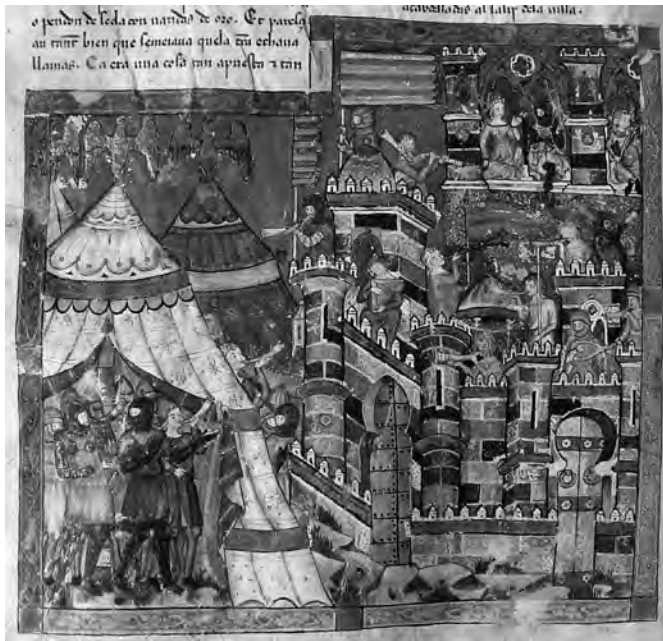 o pendon de seda con vandas de oro. Et
tant bien que semeiaua quela echaua
llamas. Ca era una cosa tan apuesta ⁊ tan
al salir dela villa.